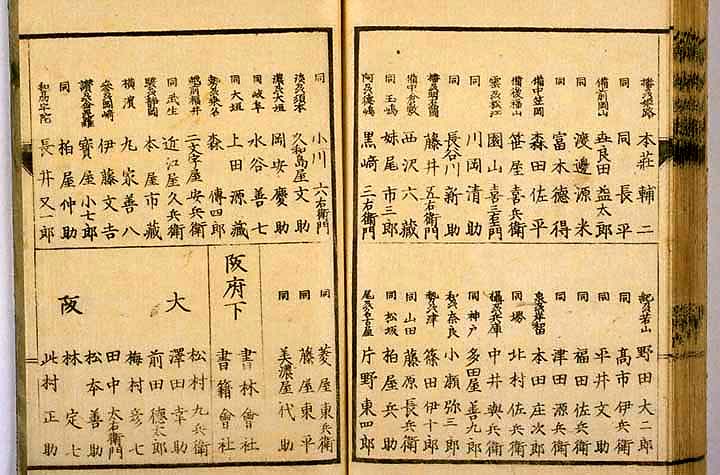 播州姫路 本莊輔二
同 同長平
備前岡山 益太郎
同 渡邊源米
同 富木德得
備中笠岡 森田佐平
備後福山 笹屋喜兵衛
雲州松江 園山喜三右衛門
同 川岡清助
同 長谷川新助
播州明石 藤井五右衛門
備中倉敷 西沢六藏
同玉嶋 妹尾市三郎
阿州德嶋 黒﨑三右衛門
紀州若山 野田大二郎
同 髙市伊兵衛
同 平井文助
同 福田佐兵衛
同 津田源兵衛
泉州岸和田 本田庄次郎
同堺 北村佐兵衛
攝州兵庫 中井興兵衛
同神戸 多田屋善九郎
和州奈良 小瀬弥三郎
勢州津 篠田伊十郎
同山田 藤原長兵衛
同松坂 柏屋兵助
尾州名古屋 片野東四郎
同 小川六右衛門
淡州須本 久和島屋文助
濃州大垣 岡安慶助
同岐阜 水谷善七
同大垣 上田源藏
勢州桑名 森傳四郎
越前福井 二文字屋安兵衛
同武生 近江屋久兵衛
駿州静岡 本屋市藏
橫濱 九家善八
參州岡﨑 伊藤文吉
讃州 寶屋小七郎
同 柏屋仲助
和州宇陀 長井又一郎
同 菱屋東兵衛
同 藤屋東平
同 美濃屋代助
阪府下
書林會社
書籍會社
大阪
松村九兵衛
澤田幸助
前田德太郎
梅村彦七
田中太右衛門
松本善助
林定七
此村正助